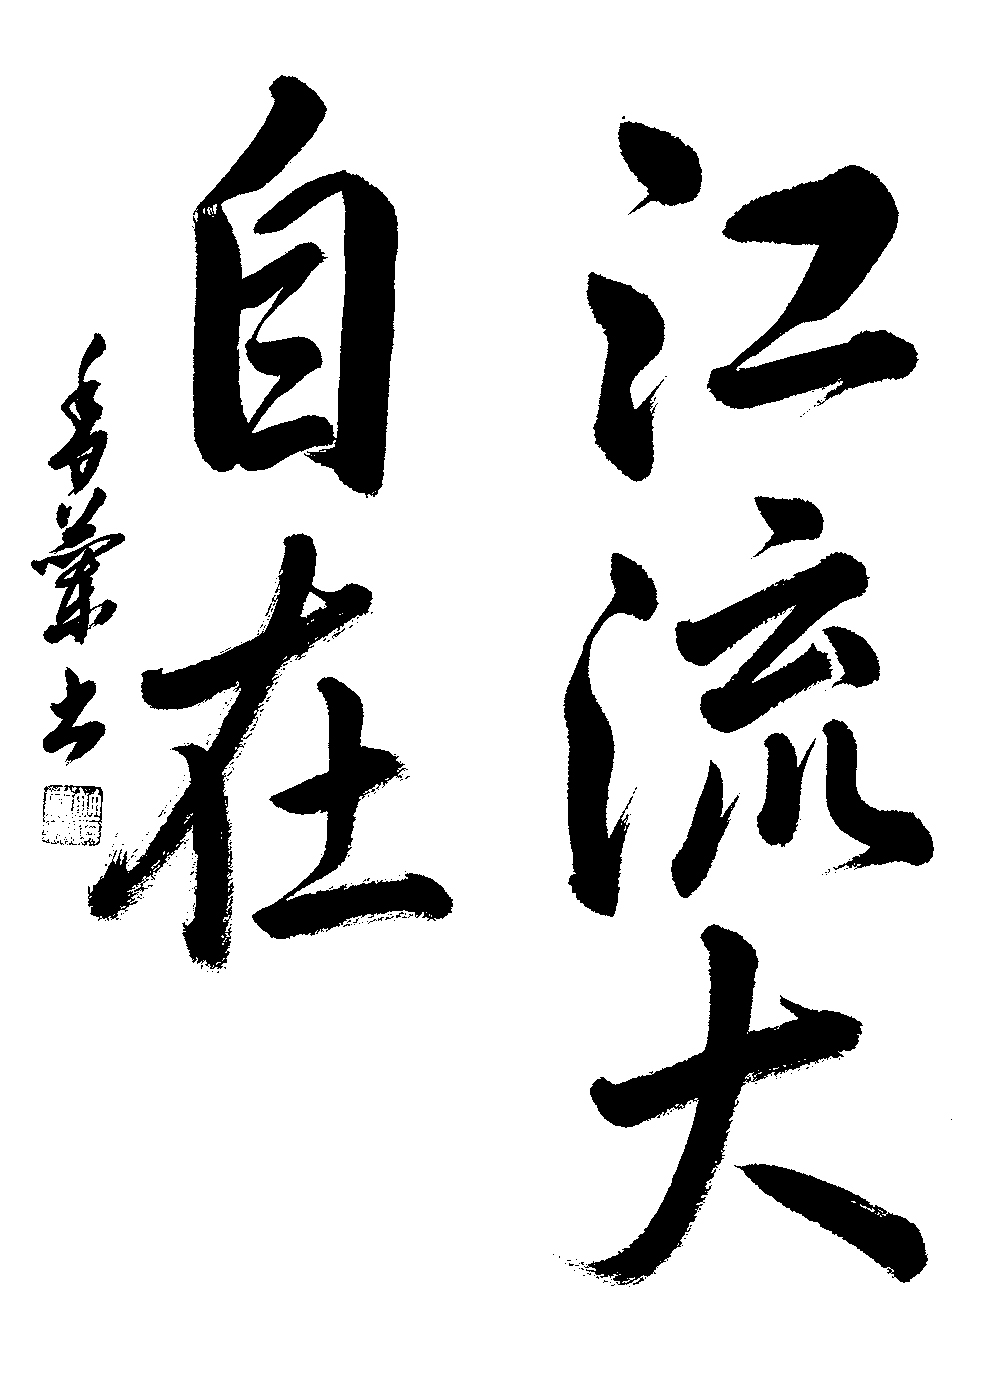 江流大
自在
香蘭书